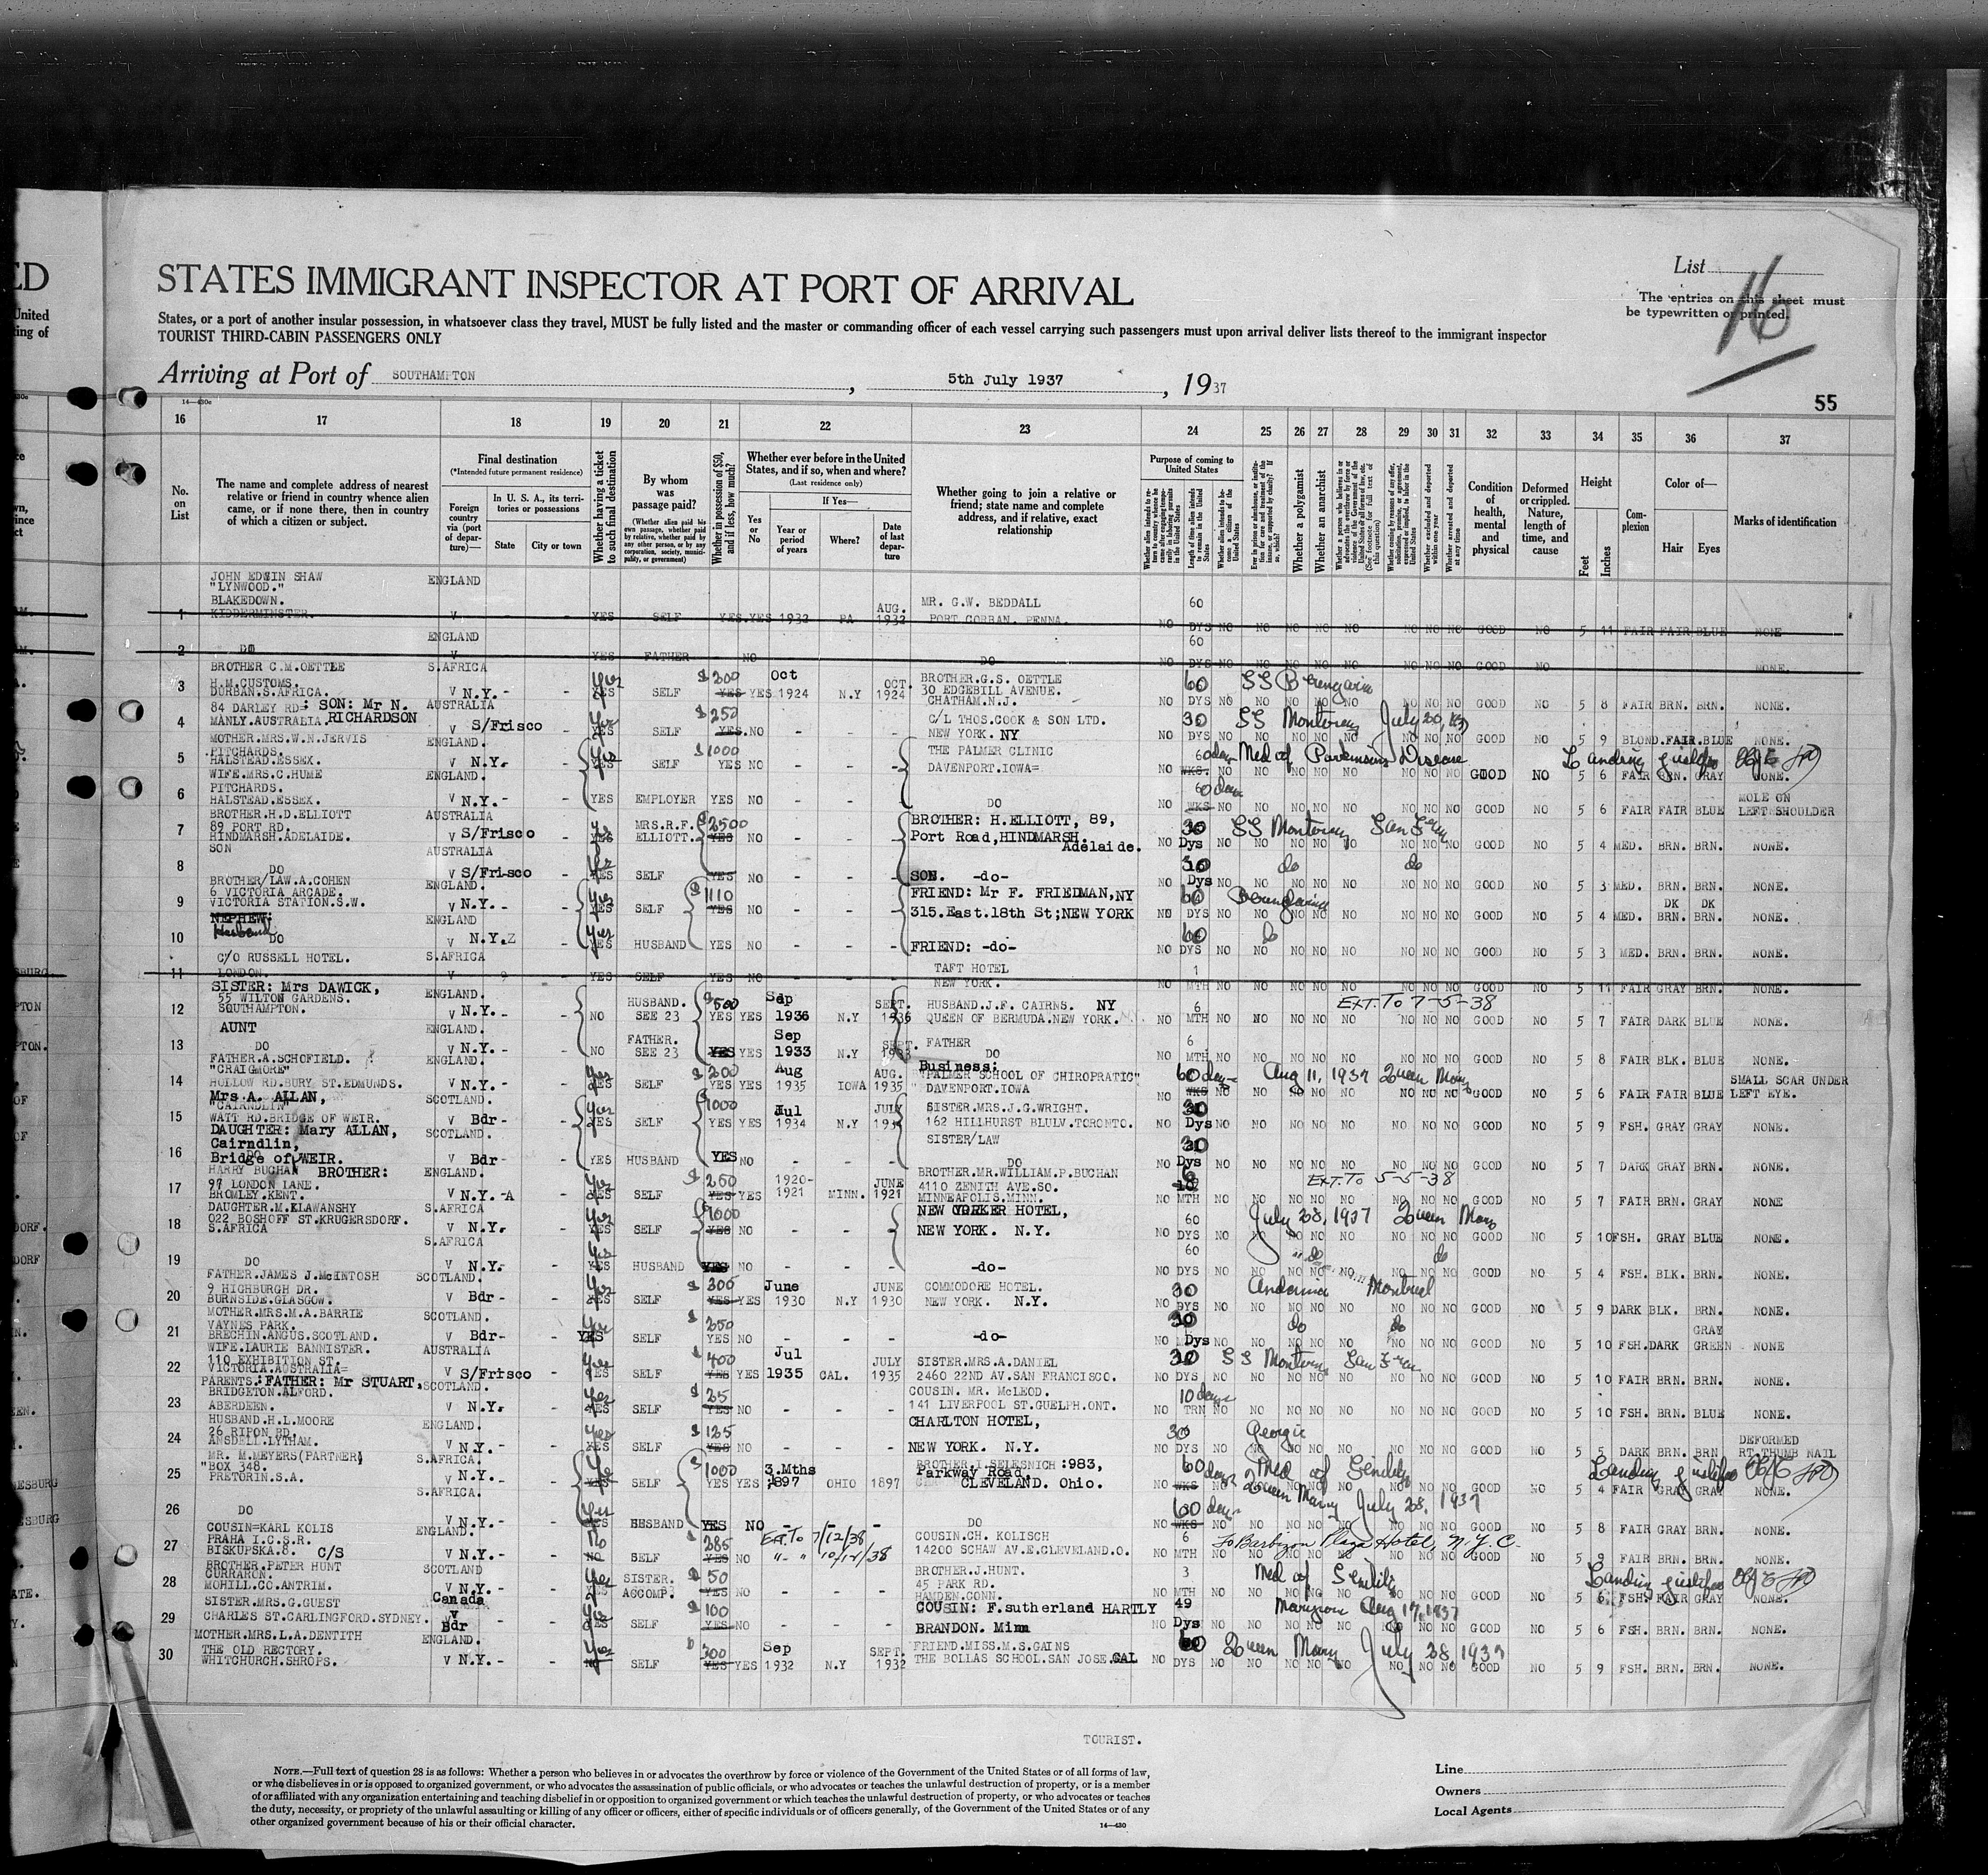 ED
STATES IMMIGRANT INSPECTOR AT PORT OF ARRIVAL
List
16
The entries on this sheet must
be typewritten or printed.
States, or a port of another insular possession, in whatsoever class they travel, MUST be fully listed and the master or commanding officer of each vessel carrying such passengers must upon arrival deliver lists thereof to the immigrant inspector
TOURIST THIRD-CABIN PASSENGERS ONLY
Arriving at Port of SOUTHAMPTON, 5th July 1937, 1937
55
16 17 18 19 20 21 22 23 24 25 26 27 28 29 30 31 32 33 34 35 36 37
No. on List
The name and complete address of nearest relative or friend in country whence alien came, or if none there, then in country of which a citizen or subject.
Final destination
(*Intended future permanent residence)
Foreign country via (port of departure)—
In U. S. A., its territories or possessions
State
City or town
Whether having a ticket to such final destination
By whom was passage paid?
(Whether alien paid his own passage, whether paid by relative, whether paid by any other person, or by any corporation, society, municipality, or government)
Whether in possession of $50, and if less, how much?
Whether ever before in the United States, and if so, when and where?
(Last residence only)
Yes or No
If Yes—
Year or period of years
Where?
Date of last departure
Whether going to join a relative or friend; state name and complete address, and if relative, exact relationship
Purpose of coming to United States
Whether a polygamist
Whether an anarchist
Condition of health, mental and physical
Deformed or crippled. Nature, length of time, and cause
Height
Feet
Inches
Complexion
Color of—
Hair
Eyes
Marks of identification
JOHN EDWIN SHAW ENGLAND
"LYNWOOD."
BLAKEDOWN. MR. G.W. BEDDALL 60
1 KIDDERMINSTER. V YES SELF YES YES 1932 PA AUG. 1932 PORT CORBAN. PENNA. NO DYS NO NO NO NO NO NO NO NO GOOD NO 5 11 FAIR FAIR BLUE NONE
ENGLAND 60
2 DO V YES FATHER NO DO NO DYS NO NO NO NO NO NO NO NO GOOD NO NONE.
BROTHER C.M.OETTLE S.AFRICA Oct
3 H.M.CUSTOMS. Yes $200 OCT. BROTHER.G.S. OETTLE 60
DURBAN.S.AFRICA. V N.Y. - - YES SELF YES YES 1924 N.Y 1924 30 EDGEBILL AVENUE. CHATHAM.N.J. NO DYS NO NO NO NO NO NO NO NO GOOD NO 5 8 FAIR BRN. BRN. NONE.
84 DARLEY RD: SON: Mr N. AUSTRALIA $250
4 MANLY.AUSTRALIA.RICHARDSON V S/Frisco - YES SELF YES NO - - - C/L THOS.COOK & SON LTD. NEW YORK. NY 30 SS Monterey July 20, NO DYS NO NO NO NO NO NO NO NO GOOD NO 5 9 BLOND.FAIR.BLUE NONE.
MOTHER.MRS.W.N.JERVIS ENGLAND. $1000 THE PALMER CLINIC 60 days Med cf Parkinsons Disease
5 PITCHARDS. HALSTEAD.ESSEX. V N.Y.- - YES SELF YES NO - - - DAVENPORT.IOWA= NO WKS. NO NO NO NO NO NO NO NO GOOD NO 5 6 FAIR GRAY NONE.
WIFE.MRS.C.HUME ENGLAND. 60 days
6 PITCHARDS. HALSTEAD.ESSEX. V N.Y.- - YES EMPLOYER YES NO - - - DO NO WKS NO NO NO NO NO NO NO NO GOOD NO 5 6 FAIR FAIR BLUE MOLE ON LEFT SHOULDER
BROTHER.H.D.ELLIOTT AUSTRALIA
7 89 PORT RD. HINDMARSH.ADELAIDE. V S/Frisco - YES MRS.R.F. ELLIOTT. $2500 YES NO - - - BROTHER: H.ELLIOTT, 89, Port Road,HINDMARSH. Adelaide. 30 SS Monterey San Fran NO Dys NO NO NO NO NO NO NO NO GOOD NO 5 4 MED. BRN. BRN. NONE.
SON AUSTRALIA
8 DO V S/Frisco - YES SELF YES NO - - - SON. -do- 30 do do NO Dys NO NO NO NO NO NO NO NO GOOD NO 5 3 MED. BRN. BRN. NONE.
BROTHER/LAW.A.COHEN ENGLAND.
9 6 VICTORIA ARCADE. VICTORIA STATION.S.W. V N.Y.- - YES SELF $110 YES NO - - - FRIEND: Mr F. FRIEDMAN,NY 315.East.18th St;NEW YORK 60 Berengaria NO DYS NO NO NO NO NO NO NO NO GOOD NO 5 4 MED. DK BRN. DK BRN. NONE.
NEPHEW: Husband ENGLAND
10 DO V N.Y.Z - YES HUSBAND YES NO - - - FRIEND: -do- 60 do NO DYS NO NO NO NO NO NO NO NO GOOD NO 5 3 MED. BRN. BRN. NONE.
C/O RUSSELL HOTEL. S.AFRICA
11 LONDON. V - YES SELF YES NO - - - TAFT HOTEL NEW YORK. 1 NO MTH NO NO NO NO NO NO NO NO GOOD NO 5 11 FAIR GRAY BRN. NONE.
SISTER: Mrs DAWICK, ENGLAND.
12 55 WILTON GARDENS. SOUTHAMPTON. V N.Y.- - NO HUSBAND. SEE 23 $500 YES YES Sep 1936 N.Y SEPT. 1936 HUSBAND.J.F. CAIRNS. NY QUEEN OF BERMUDA.NEW YORK. 6 EXT. TO 7-5-38 NO MTH NO NO NO NO NO NO NO NO GOOD NO 5 7 FAIR DARK BLUE NONE.
AUNT ENGLAND.
13 DO V N.Y.- - NO FATHER. SEE 23 YES YES Sep 1933 N.Y SEPT. FATHER DO 6 NO MTH NO NO NO NO NO NO NO NO GOOD NO 5 8 FAIR BLK. BLUE NONE.
FATHER.A.SCHOFIELD. ENGLAND.
14 "CRAIGMORE" HOLLOW RD.BURY ST.EDMUNDS. V N.Y.- - YES SELF $200 YES YES Aug 1935 IOWA AUG. 1935 Business: "PALMER SCHOOL OF CHIROPRATIC" DAVENPORT.IOWA 60 days Aug 11, 1937 Queen Mary NO WKS NO NO NO NO NO NO NO NO GOOD NO 5 6 FAIR FAIR BLUE SMALL SCAR UNDER LEFT EYE.
Mrs A. ALLAN, SCOTLAND.
15 "CAIRNDLIN" WATT RD.BRIDGE OF WEIR. V Bdr - YES SELF $1000 YES YES Jul 1934 N.Y JULY SISTER.MRS.J.G.WRIGHT. 162 HILLHURST BLULV.TORONTO. 30 NO Dys NO NO NO NO NO NO NO NO GOOD NO 5 9 FSH. GRAY GRAY NONE.
DAUGHTER: Mary ALLAN, SCOTLAND.
16 Cairndlin, Bridge of WEIR. V Bdr - YES HUSBAND YES NO - - - SISTER/LAW DO 30 NO Dys NO NO NO NO NO NO NO NO GOOD NO 5 7 DARK GRAY BRN. NONE.
HARRY BUCHAN BROTHER: ENGLAND.
17 97 LONDON LANE. BROMLEY.KENT. V N.Y. -A - YES SELF $250 YES YES 1920-1921 MINN. JUNE 1921 BROTHER.MR.WILLIAM.P.BUCHAN 4110 ZENITH AVE.SO. MINNEAPOLIS.MINN. EXT. TO 5-5-38 NO MTH NO NO NO NO NO NO NO NO GOOD NO 5 7 FAIR BRN. GRAY NONE
DAUGHTER.M.KLAWANSHY S.AFRICA
18 022 BOSHOFF ST.KRUGERSDORF. S.AFRICA V N.Y. - YES SELF $1000 YES NO - - - NEW YORKER HOTEL, NEW YORK. N.Y. 60 July 28, 1937 Queen Mary NO DYS NO NO NO NO NO NO NO NO GOOD NO 5 10 FSH. GRAY BLUE NONE.
S.AFRICA
19 DO V N.Y.- - YES HUSBAND YES NO - - - -do- 60 " do do NO DYS NO NO NO NO NO NO NO NO GOOD NO 5 4 FSH. BLK. BRN. NONE.
FATHER.JAMES J.McINTOSH SCOTLAND.
20 9 HIGHBURGH DR. BURNSIDE.GLASGOW. V Bdr - YES SELF $300 YES YES June 1930 N.Y JUNE 1930 COMMODORE HOTEL. NEW YORK. N.Y. 30 Andania Montreal NO DYS NO NO NO NO NO NO NO NO GOOD NO 5 9 DARK BLK. BRN. NONE.
MOTHER.MRS.M.A.BARRIE SCOTLAND.
21 VAYNES PARK. BRECHIN.ANGUS.SCOTLAND. V Bdr- - YES SELF $250 YES NO - - - -do- 30 do do NO Dys NO NO NO NO NO NO NO NO GOOD NO 5 10 FSH.DARK GRAY GREEN NONE
WIFE.LAURIE BANNISTER. AUSTRALIA
22 110 EXHIBITION ST. VICTORIA.AUSTRALIA= V S/Frisco - YES SELF $400 YES YES Jul 1935 CAL. JULY 1935 SISTER.MRS.A.DANIEL 2460 22ND AV.SAN FRANCISCO. 30 SS Monterey San Fran NO DYS NO NO NO NO NO NO NO NO GOOD NO 5 10 FAIR BRN. BRN. NONE.
PARENTS.:FATHER: Mr STUART, SCOTLAND.
23 BRIDGETON.ALFORD. ABERDEEN. V N.Y. - YES SELF $25 YES NO - - - COUSIN. MR. McLEOD. 141 LIVERPOOL ST.GUELPH.ONT. 10 days NO TRN NO NO NO NO NO NO NO NO GOOD NO 5 10 FSH. BRN. BLUE NONE.
HUSBAND.H.L.MOORE ENGLAND.
24 26 RIPON RD. ANSDELL.LYTHAM. V N.Y.- - YES SELF $125 YES NO - - - CHARLTON HOTEL, NEW YORK. N.Y. 30 Georgic NO DYS NO NO NO NO NO NO NO NO GOOD NO 5 5 DARK BRN. BRN DEFORMED RT.THUMB NAIL
MR. M.MEYERS(PARTNER) S.AFRICA.
25 "BOX 348. PRETORIN.S.A. V N.Y. - YES SELF $1000 YES YES 3.Mths 1897 OHIO 1897 BROTHER.I.SELESNICH :983, Parkway Road, CLEVELAND. Ohio. 60 days Med cf Senility Queen Mary July 28, 1937 NO WKS NO NO NO NO NO NO NO NO GOOD NO 5 4 FAIR GRAY GRAY NONE.
S.AFRICA.
26 DO V N.Y.- - YES HUSBAND YES NO - - - DO 60 days NO WKS NO NO NO NO NO NO NO NO GOOD NO 5 8 FAIR GRAY BRN. NONE.
COUSIN=KARL KOLIS ENGLAND.
27 PRAHA I.C.S.R. BISKUPSKA.8. C/S V N.Y.- - NO SELF $285 YES NO EXT. TO 7/12/38 " - " 10/12/38 COUSIN.CH. KOLISCH 14200 SCHAW AV.E.CLEVELAND.O. 6 To Barbizon Plaza Hotel, N.Y.C. NO MTH NO NO NO NO NO NO NO NO GOOD NO 5 9 FAIR BRN. BRN. NONE.
BROTHER.PETER HUNT SCOTLAND
28 CURRARON. MOHILL.CO.ANTRIM. V N.Y.- - YES SISTER. ACCOMP: $50 YES NO - - - BROTHER.J.HUNT. 45 PARK RD. HAMDEN.CONN. 3 Med cf Senility NO MTH NO NO NO NO NO NO NO NO GOOD NO 5 6 FSH. FAIR GRAY NONE.
SISTER.MRS.G.GUEST Canada
29 CHARLES ST.CARLINGFORD.SYDNEY. V Bdr - YES SELF $100 YES NO - - - COUSIN: F.sutherland HARTLY BRANDON. Minn 49 Aug 17, 1937 NO Dys NO NO NO NO NO NO NO NO GOOD NO 5 6 FSH. BRN. BRN. NONE.
MOTHER.MRS.L.A.DENTITH ENGLAND.
30 THE OLD RECTORY. WHITCHURCH.SHROPS. V N.Y.- - NO SELF 300 YES YES Sep 1932 N.Y SEPT. 1932 FRIEND.MISS.M.S.GAINS THE BOLLAS SCHOOL.SAN JOSE.CAL 60 Queen Mary July 28, 1937 NO DYS NO NO NO NO NO NO NO NO GOOD NO 5 9 FSH. BRN. BRN. NONE.
TOURIST.
NOTE.—Full text of question 28 is as follows: Whether a person who believes in or advocates the overthrow by force or violence of the Government of the United States or of all forms of law,
or who disbelieves in or is opposed to organized government, or who advocates the assassination of public officials, or who advocates or teaches the unlawful destruction of property, or is a member
of or affiliated with any organization entertaining and teaching disbelief in or opposition to organized government or which teaches the unlawful destruction of property, or who advocates or teaches
the duty, necessity, or propriety of the unlawful assaulting or killing of any officer or officers, either of specific individuals or of officers generally, of the Government of the United States or of any
other organized government because of his or their official character.
14—430
Line
Owners
Local Agents